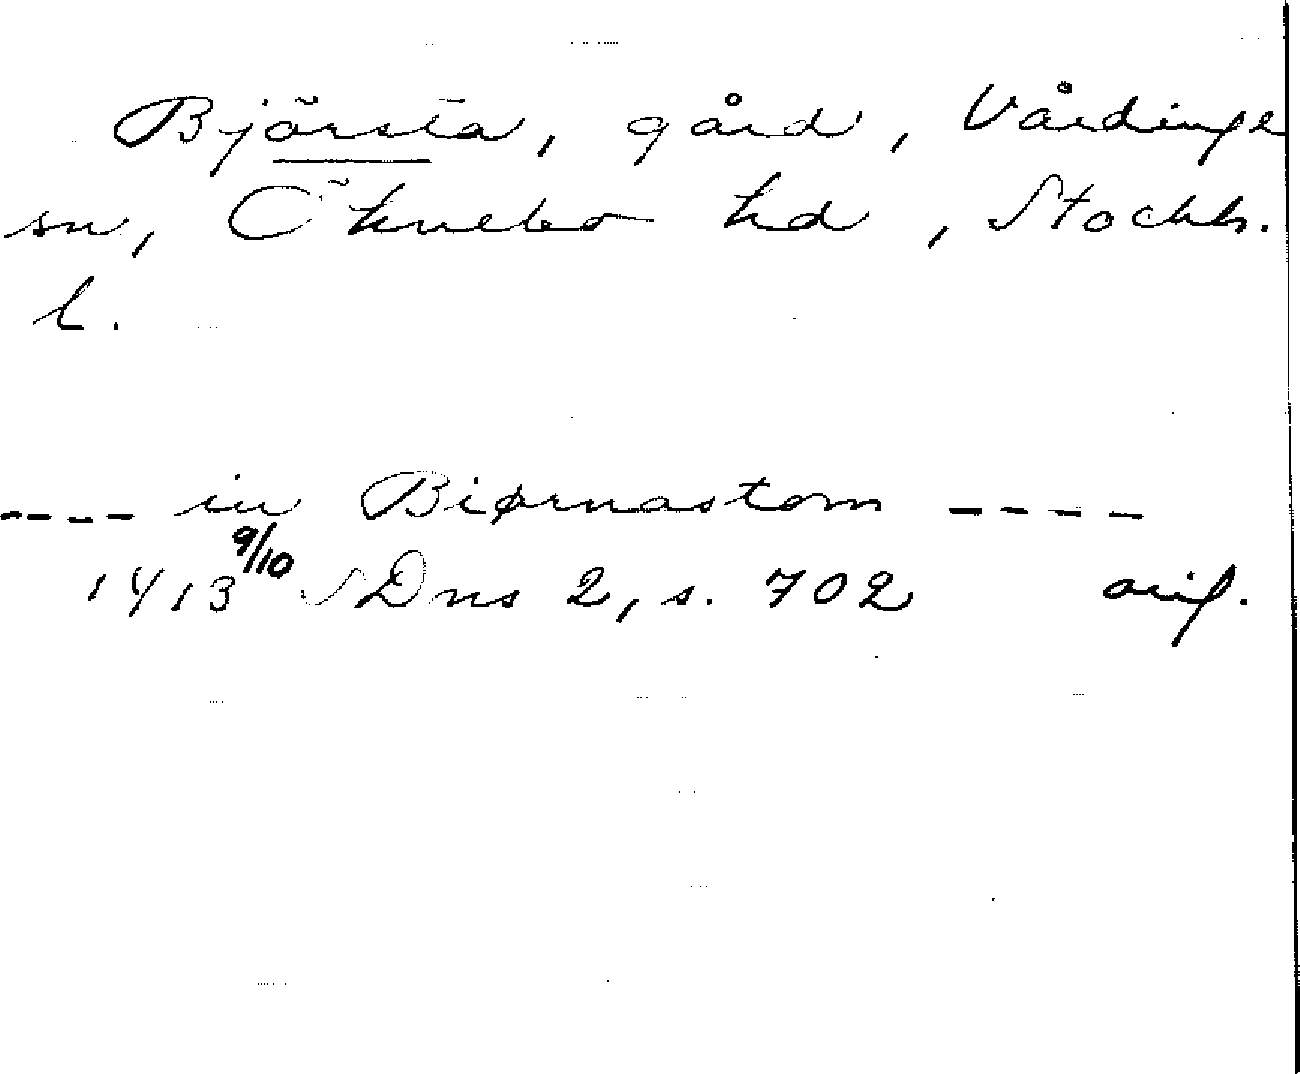 Björsta, gård, Vårdinge
sn, Öknebo hd, Stockh.
l.
---- in Biørnastom ----
1413 9/10 SDns 2, s. 702 orig.